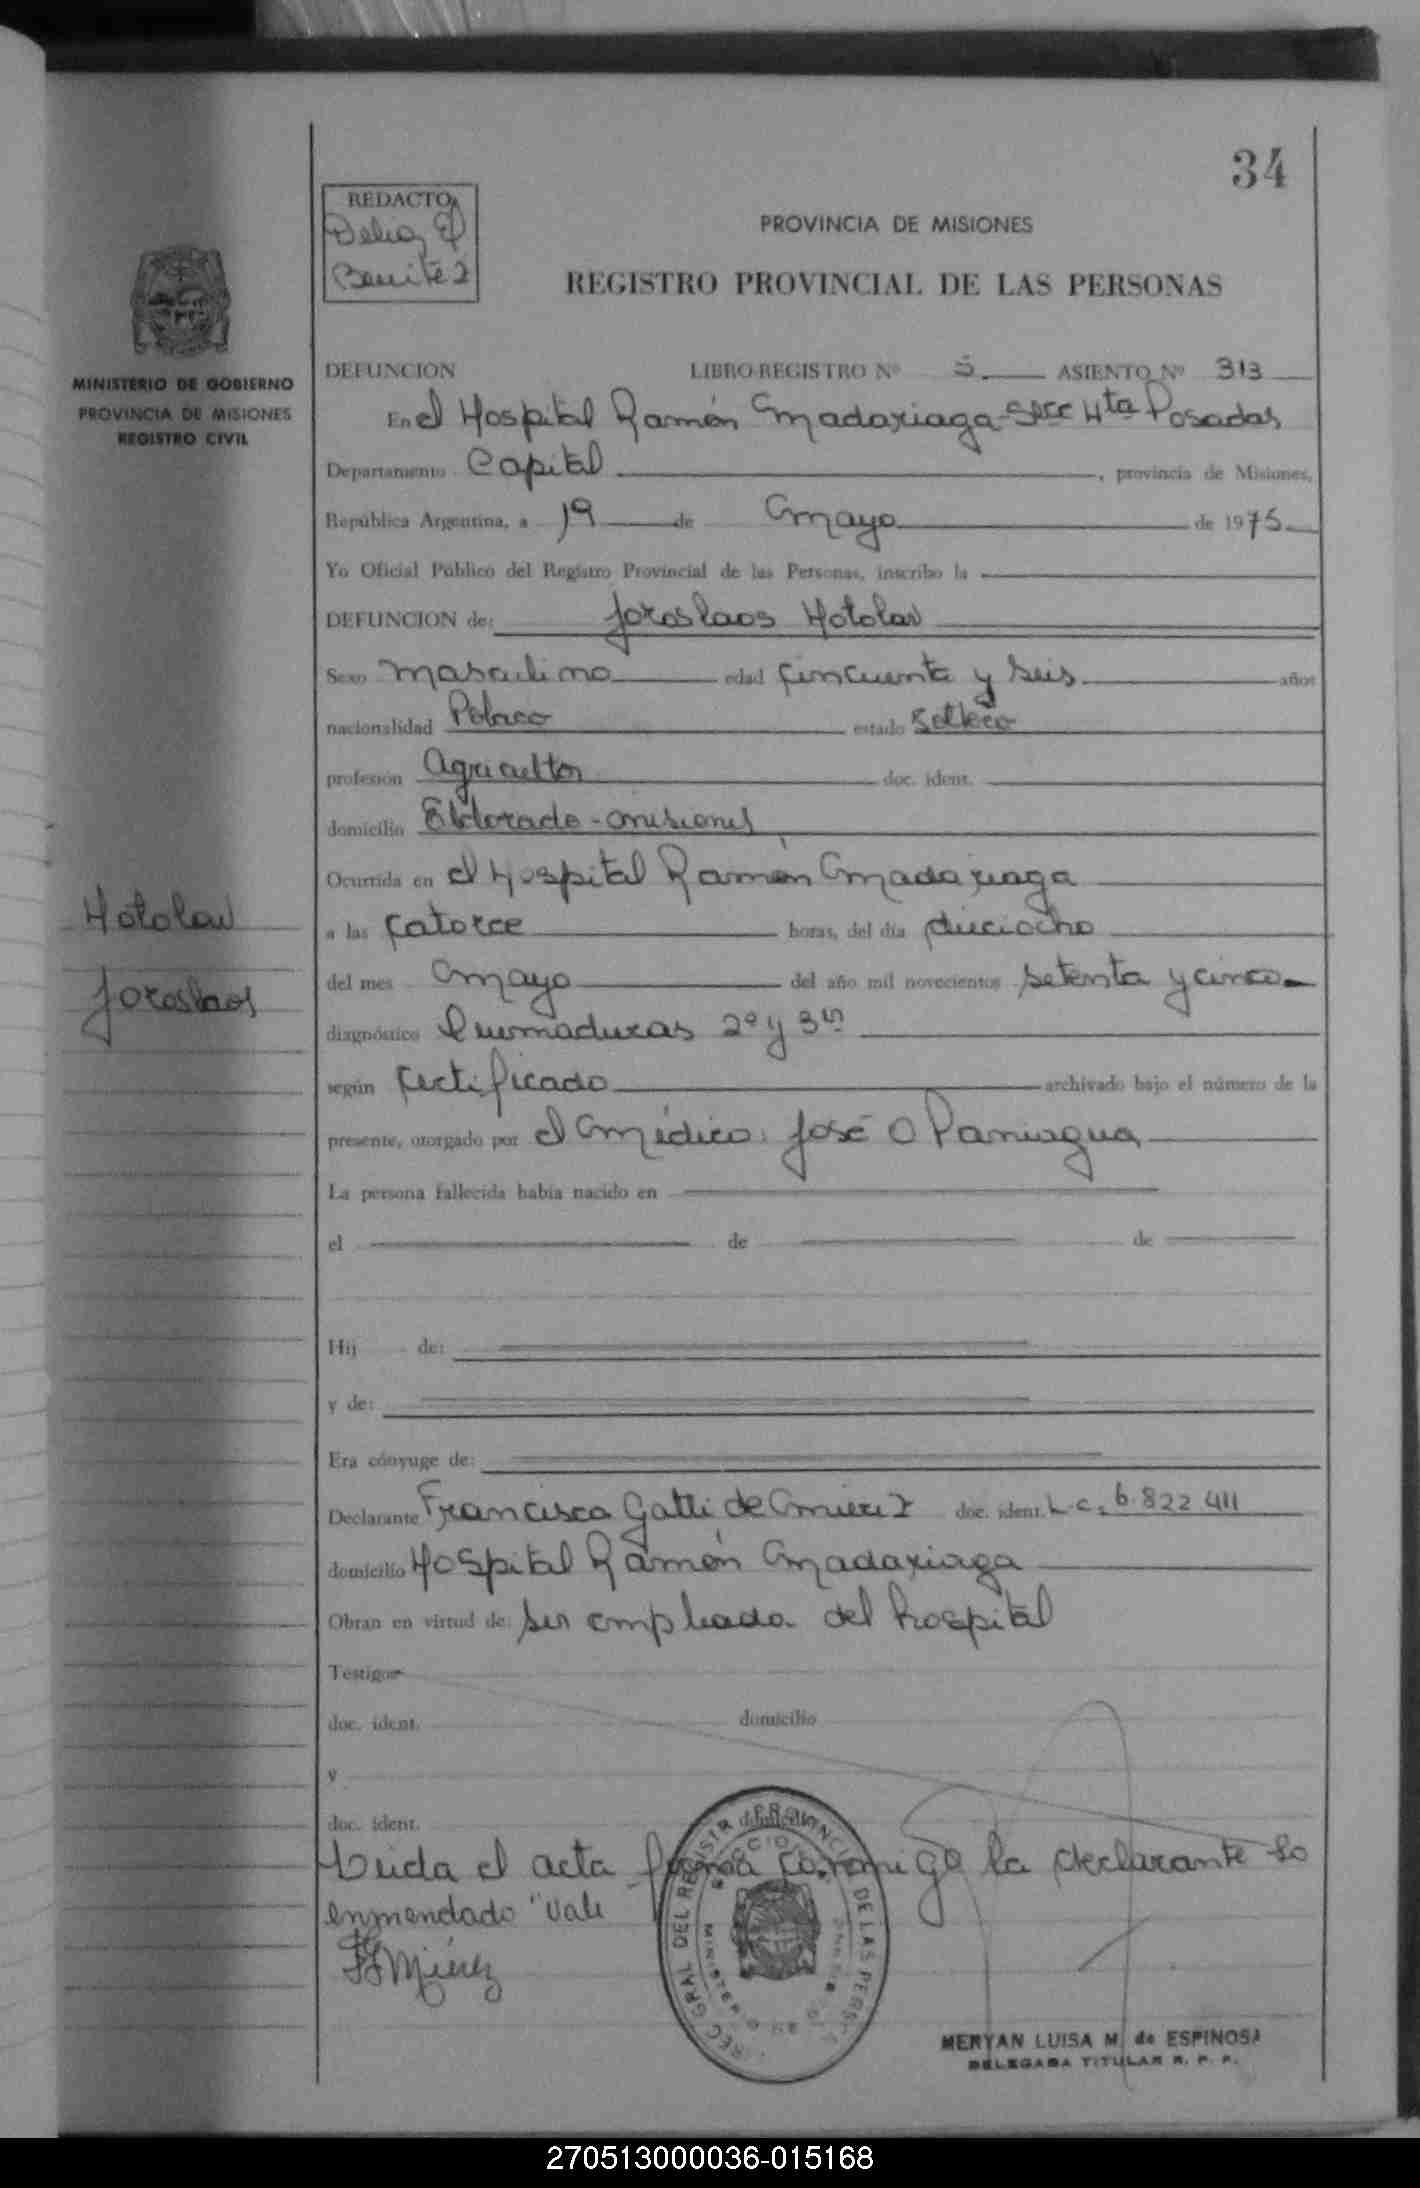 34
REDACTO
Delia E
Benitez
PROVINCIA DE MISIONES
REGISTRO PROVINCIAL DE LAS PERSONAS
MINISTERIO DE GOBIERNO
PROVINCIA DE MISIONES
REGISTRO CIVIL
DEFUNCION LIBRO-REGISTRO Nº 5 ASIENTO Nº 313
En el Hospital Ramón Madariaga - Secc 4ta Posadas
Departamento Capital, provincia de Misiones,
República Argentina, a 19 de Mayo de 1975
Yo Oficial Público del Registro Provincial de las Personas, inscribo la
DEFUNCION de: Joroslaos Hotolav
Sexo masculino edad cincuenta y seis años
nacionalidad Polaco estado soltero
profesión Agricultor doc. ident.
domicilio Eldorado - misiones
Ocurrida en el Hospital Ramón Madariaga
Hotolav
Joroslaos
a las catorce horas, del día dieciocho
del mes Mayo del año mil novecientos setenta y cinco
diagnóstico Quemaduras 2º y 3º
según certificado archivado bajo el número de la
presente, otorgado por el Médico: José O Paniagua
La persona fallecida había nacido en
el de de
Hij de:
y de:
Era cónyuge de:
Declarante Francisca Gatti de Mierez doc. ident. L.C. 6.822 411
domicilio Hospital Ramón Madariaga
Obran en virtud de: ser empleada del hospital
Testigos
doc. ident. domicilio
y
doc. ident. domicilio
Leida el acta firma conmigo la declarante So
enmendado "Vale
FG Miérez
MERYAN LUISA M. de ESPINOSA
DELEGADA TITULAR R. P. P.
270513000036-015168